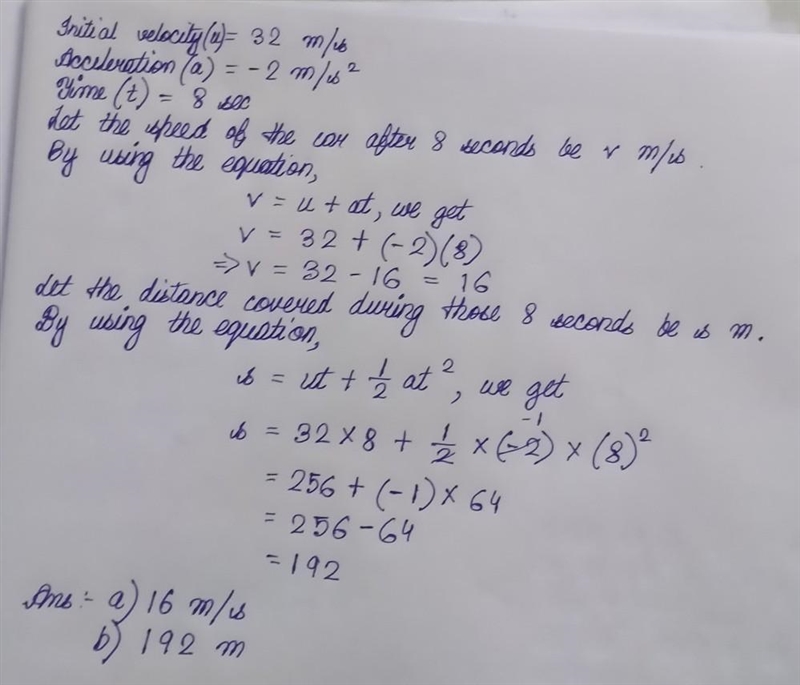 Initial velocity(u)= 32 m/s
Acceleration(a) = -2 m/s²
Time (t) = 8 sec
Let the speed of the car after 8 seconds be v m/s.
By using the equation,
v = u + at, we get
v = 32 + (-2)(8)
⇒ v = 32 - 16 = 16
Let the distance covered during those 8 seconds be s m.
By using the equation,
s = ut + 1/2 at², we get
-1
s = 32 × 8 + 1/2 × (-2) × (8)²
= 256 + (-1) × 64
= 256 - 64
= 192
Ans :- a) 16 m/s
b) 192 m